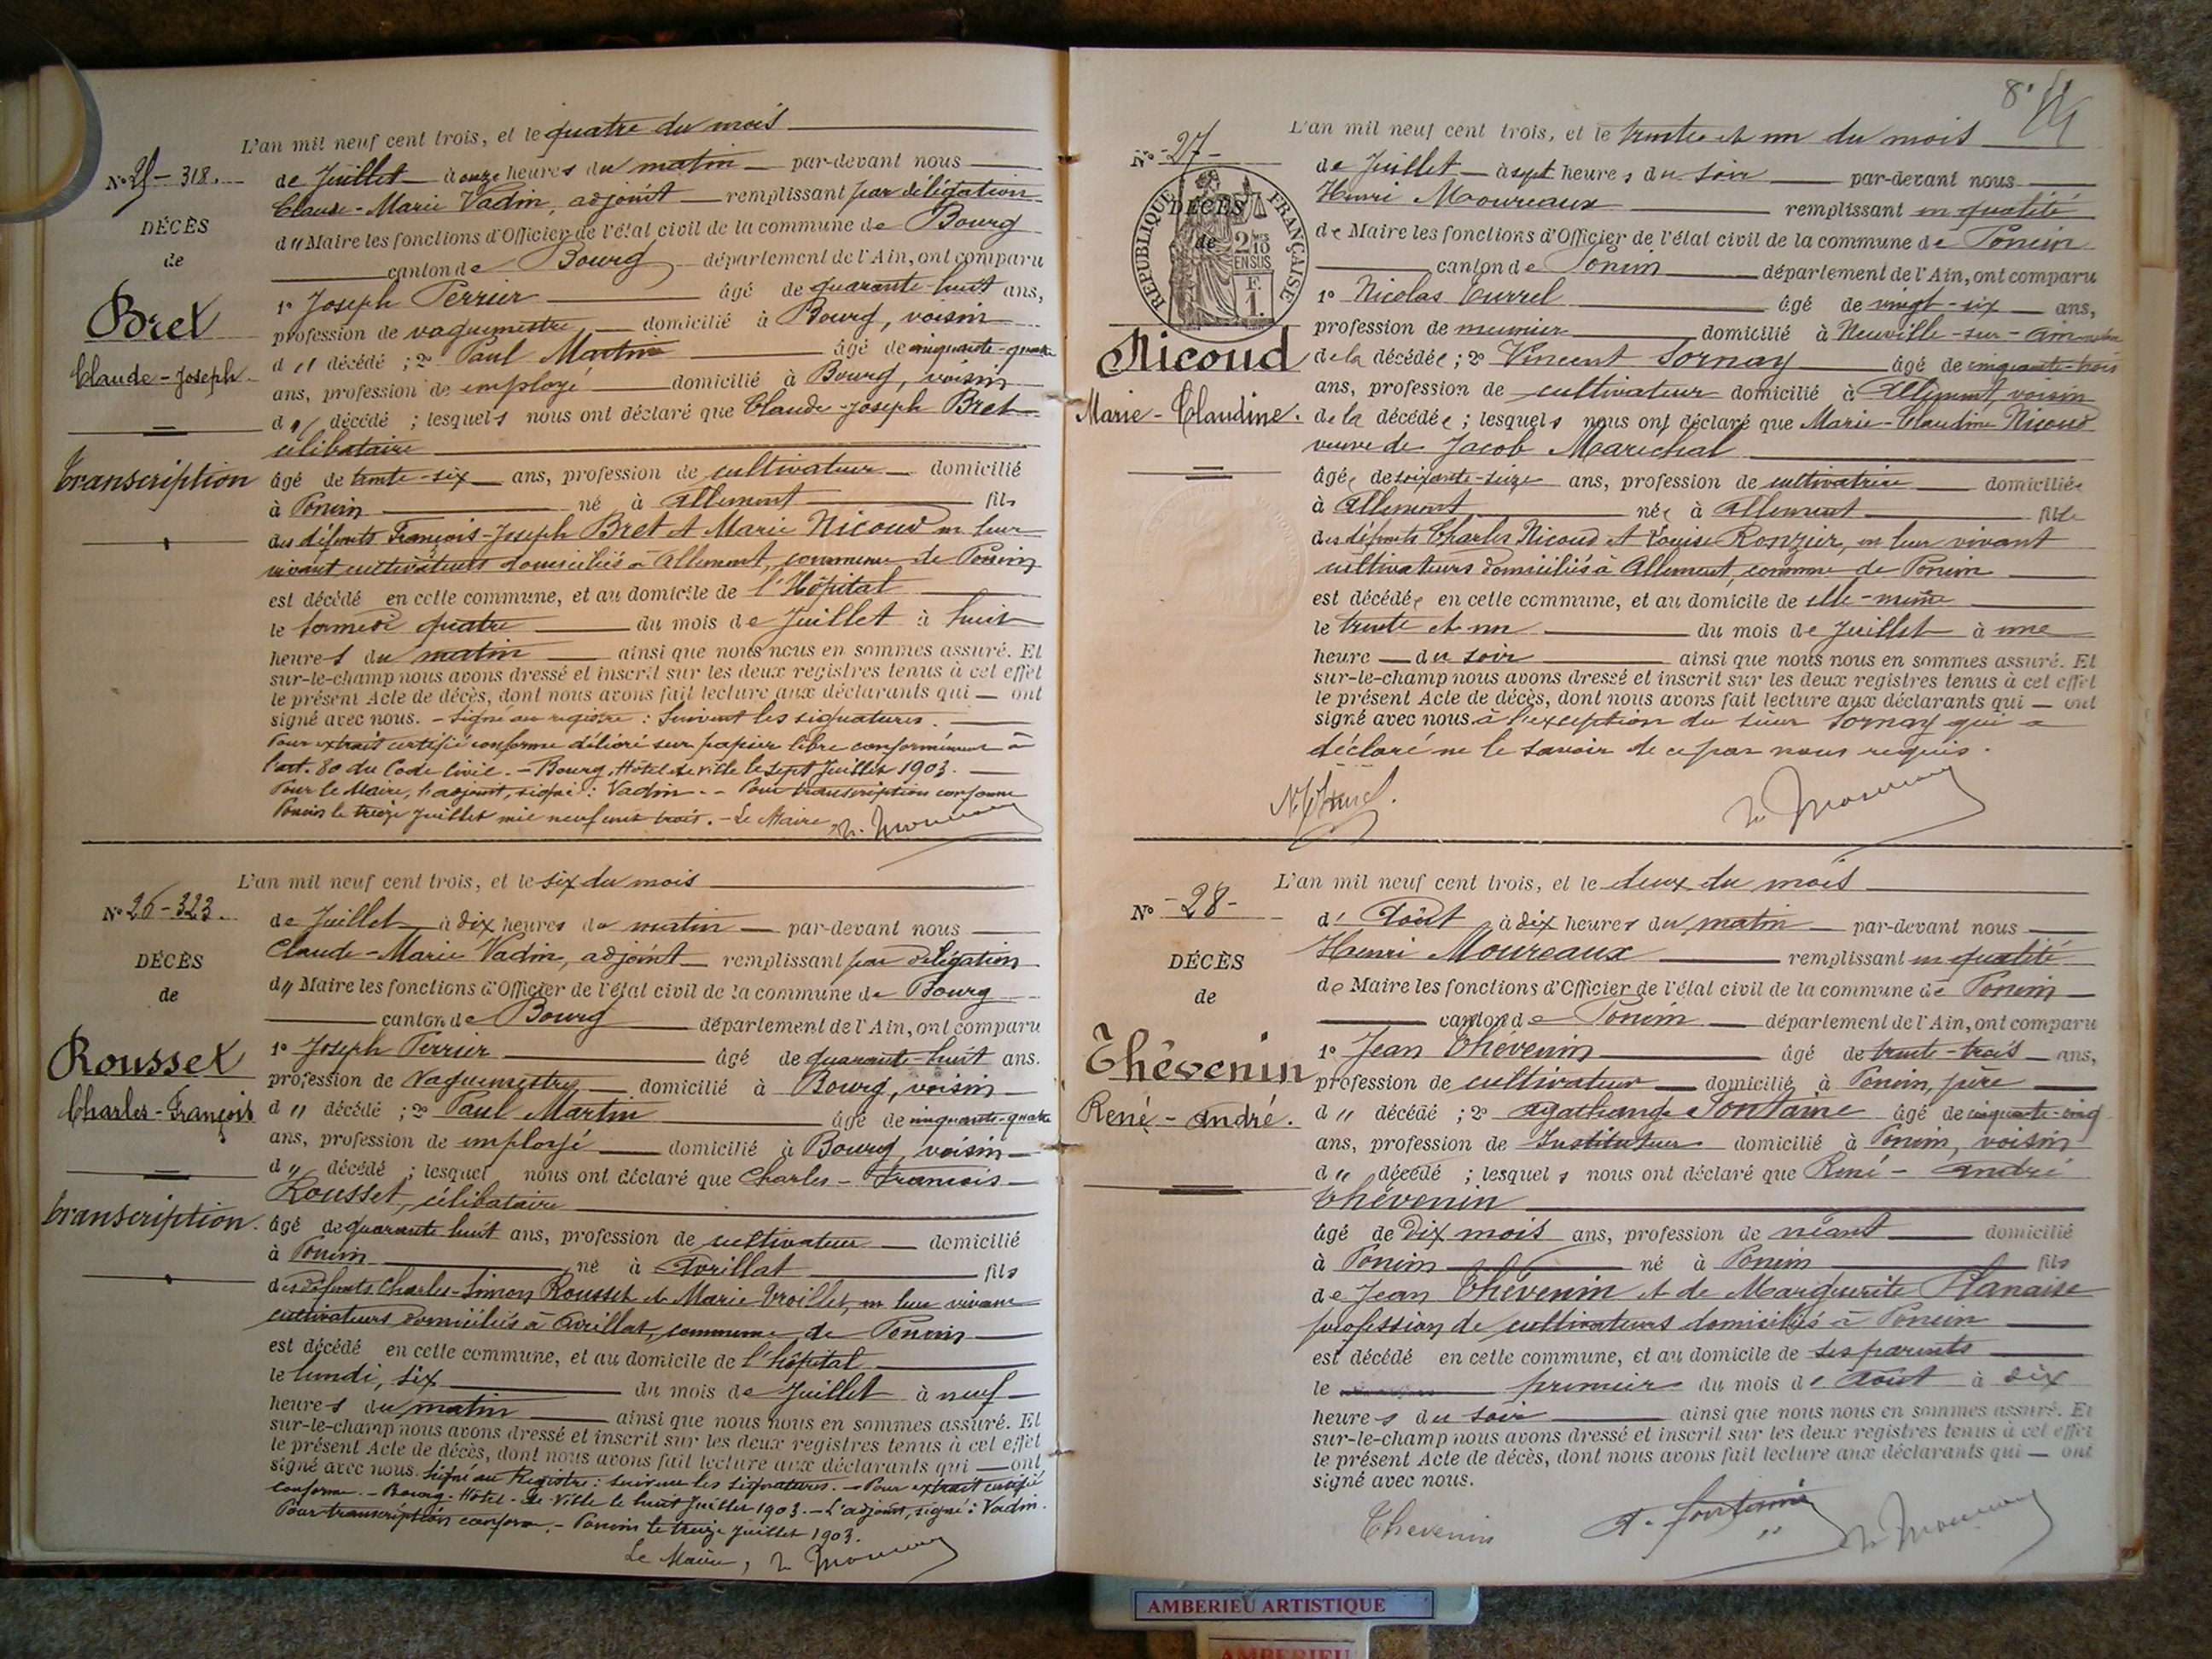 L'an mil neuf cent trois, et le quatre du mois
No 25 - 318.
de Juillet à onze heures du matin par-devant nous
Claude-Marie Vadin, adjoint remplissant par délégation
DÉCÈS
du Maire les fonctions d'Officier de l'état civil de la commune de Bourg
de
canton de Bourg département de l'Ain, ont comparu
1o Joseph Perrier âgé de quarante-huit ans,
Bret
profession de vaguemestre domicilié à Bourg, voisin
du décédé ; 2o Paul Martin âgé de cinquante-quatre
Claude-Joseph
ans, profession de employé domicilié à Bourg, voisin
du décédé ; lesquels nous ont déclaré que Claude-Joseph Bret
célibataire
Transcription
âgé de trente-six ans, profession de cultivateur domicilié
à Poncin né à Allement fils
des défunts François-Joseph Bret et Marie Nicoud en leur
vivant cultivateurs domiciliés à Allement, commune de Poncin
est décédé en cette commune, et au domicile de l'Hôpital
le samedi quatre du mois de Juillet à huit
heures du matin ainsi que nous nous en sommes assuré. Et
sur-le-champ nous avons dressé et inscrit sur les deux registres tenus à cet effet
le présent Acte de décès, dont nous avons fait lecture aux déclarants qui ont
signé avec nous. - Signé au registre : Suivent les signatures.
Pour extrait certifié conforme délivré sur papier libre conformément à
l'art. 80 du Code Civil. - Bourg, Hôtel de ville le sept Juillet 1903.
Pour le Maire, l'adjoint, signé : Vadin. - Pour transcription conforme
Poncin le treize Juillet mil neuf cent trois. - Le Maire
L'an mil neuf cent trois, et le six du mois
No 26 - 323.
de Juillet à dix heures du matin par-devant nous
Claude-Marie Vadin, adjoint remplissant par délégation
DÉCÈS
du Maire les fonctions d'Officier de l'état civil de la commune de Bourg
de
canton de Bourg département de l'Ain, ont comparu
1o Joseph Perrier âgé de quarante-huit ans.
Rousset
profession de Vaguemestre domicilié à Bourg, voisin
Charles-François
du décédé ; 2o Paul Martin âgé de cinquante-quatre
ans, profession de employé domicilié à Bourg, voisin
du décédé ; lesquel nous ont déclaré que Charles-François
Rousset, célibataire
Transcription.
âgé de quarante huit ans, profession de cultivateur domicilié
à Poncin né à Avrillat fils
des défunts Charles-Simon Rousset et Marie Troillet, en leur vivant
cultivateurs domiciliés à Avrillat, commune de Poncin
est décédé en cette commune, et au domicile de l'hôpital
le lundi, six du mois de Juillet à neuf
heures du matin ainsi que nous nous en sommes assuré. Et
sur-le-champ nous avons dressé et inscrit sur les deux registres tenus à cet effet
le présent Acte de décès, dont nous avons fait lecture aux déclarants qui ont
signé avec nous. Signé au Registre : suivent les signatures. - Pour extrait certifié
conforme. - Bourg-Hôtel-de-Ville le huit Juillet 1903. - L'adjoint, signé : Vadin.
Pour transcription conforme. - Poncin le treize Juillet 1903.
Le Maire,
8
L'an mil neuf cent trois, et le trente et un du mois
No -27-
de Juillet à sept heures du soir par-devant nous
Henri Moureaux remplissant en qualité
DÉCÈS
de
REPUBLIQUE FRANÇAISE
2/10 EN SUS
F. 1.
de Maire les fonctions d'Officier de l'état civil de la commune de Poncin
canton de Poncin département de l'Ain, ont comparu
1o Nicolas Curvel âgé de vingt-six ans,
profession de meunier domicilié à Neuville-sur-Ain
Nicoud
de la décédée ; 2o Vincent Sornay âgé de cinquante-trois
ans, profession de cultivateur domicilié à Allement, voisin
Marie-Claudine.
de la décédée ; lesquels nous ont déclaré que Marie-Claudine Nicoud
veuve de Jacob Maréchal
âgée de soixante-seize ans, profession de cultivatrice domiciliée
à Allement née à Allement fille
des défunts Charles Nicoud et Louise Ronzier, en leur vivant
cultivateurs domiciliés à Allement, commune de Poncin
est décédée en cette commune, et au domicile de elle-même
le trente et un du mois de Juillet à une
heure du soir ainsi que nous nous en sommes assuré. Et
sur-le-champ nous avons dressé et inscrit sur les deux registres tenus à cet effet
le présent Acte de décès, dont nous avons fait lecture aux déclarants qui ont
signé avec nous à l'exception du sieur Sornay qui a
déclaré ne le savoir de ce par nous requis.
L'an mil neuf cent trois, et le deux du mois
No -28-
d'Août à dix heures du matin par-devant nous
Henri Moureaux remplissant en qualité
DÉCÈS
de Maire les fonctions d'Officier de l'état civil de la commune de Poncin
de
canton de Poncin département de l'Ain, ont comparu
1o Jean Thévenin âgé de trente-trois ans,
Thévenin
profession de cultivateur domicilié à Poncin, père
René-André.
du décédé ; 2o Agathange Fontaine âgé de cinquante-cinq
ans, profession de Instituteur domicilié à Poncin, voisin
du décédé ; lesquels nous ont déclaré que René-André
Thévenin
âgé de Dix mois ans, profession de néant domicilié
à Poncin né à Poncin fils
de Jean Thévenin et de Marguerite Planaise
profession de cultivateurs domiciliés à Poncin
est décédé en cette commune, et au domicile de ses parents
le premier du mois d'Août à dix
heures du soir ainsi que nous nous en sommes assuré. Et
sur-le-champ nous avons dressé et inscrit sur les deux registres tenus à cet effet
le présent Acte de décès, dont nous avons fait lecture aux déclarants qui ont
signé avec nous.
Thevenin
A. Fontaine
AMBERIEU ARTISTIQUE
AMBERIEU